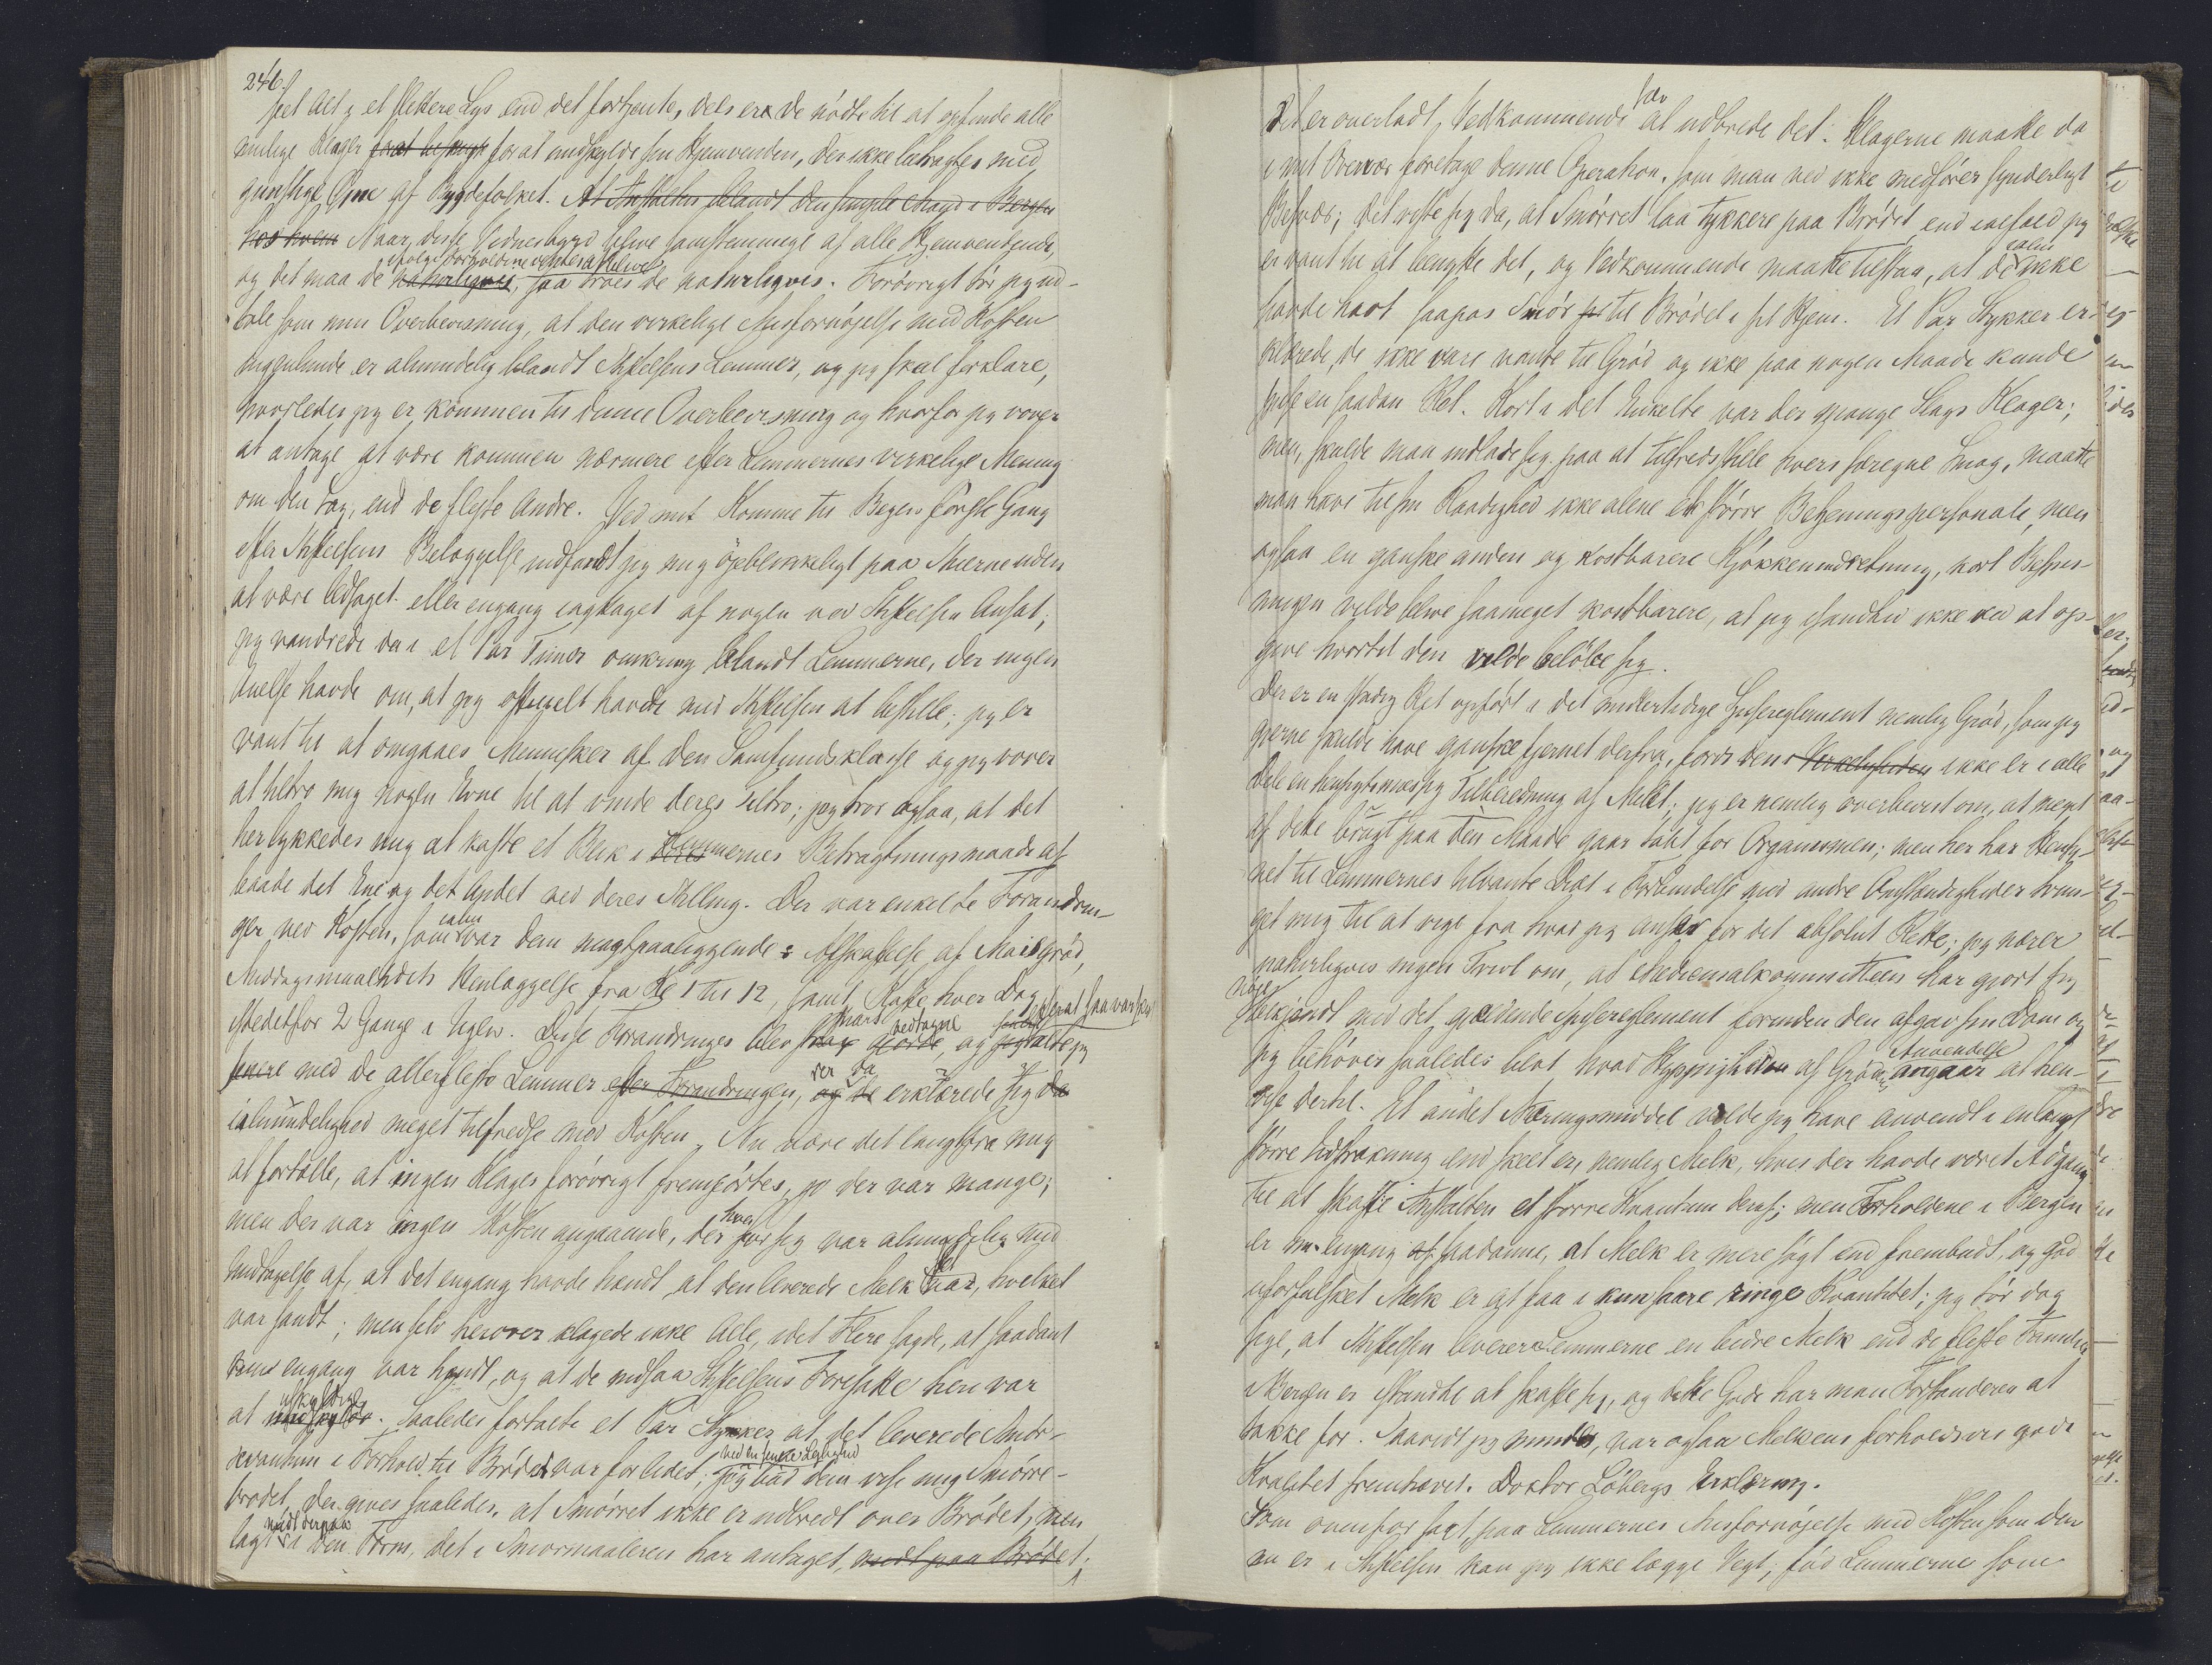 246.
seet Alt i et slettere Lys end det fortjente, dels ere de nødte til at opfinde alle
mulige Klager for at besmykke for at undskylde sin Hjemvenden, der ikke betragtes med
gunstige Øine af Bygdefolket. At Anstalten iblandt den simple Mand i Bergen
hos hvem Naar disse Vidnesbyrd blive samstemmige af alle Hjemvendende,
ifølge Forholdene vel blive
og det maa de naturligvis, saa troes de naturligvis. Forøvrigt bør jeg ud-
tale som min Overbevisning, at den virkelige Misfornøjelse med Kosten
ingenlunde er almindelig blandt Stiftelsens Lemmer, og jeg skal forklare,
hvorledes jeg er kommen til denne Overbevisning og hvorfor jeg vover
at antage at være kommen nærmere efter Lemmernes virkelige Mening
om den Sag, end de fleste Andre. Ved mit Komme til Bergen første Gang
efter Stiftelsens Belæggelse indfandt jeg mig øjeblikkeligt paa Stuerne uden
at være ledsaget eller engang iagttaget af nogen ved Stiftelsen Ansat;
jeg vandrede da i et Par Timer omkring blandt Lemmerne, der ingen
Anelse havde om, at jeg officielt havde med Stiftelsen at bestille; jeg er
vant til at omgaaes Mennesker af den Samfundsklasse og jeg vover
at tiltro mig nogen Evne til at vinde deres Tiltro; jeg tror ogsaa, at det
her lykkedes mig at kaste et Blik i Lemmernes Betragtningsmaade af
baade det Ene og det Andet ved deres Stilling. Der var enkelte Forandrin-
ger ved Kosten, som var dem magtpaaliggende: Afskaffelse af Maisgrød,
Middagsmaaltidets Henlæggelse fra Kl 1 til 12, samt Kaffe hver Dag
snart vedtagne efterat saa var skeet
istedetfor 2 Gange i Ugen. Disse Forandringer blev strax gjorde, og jeg talte jeg
senere med de allerfleste Lemmer efter Forandringen, og de erklærede sig da
ialmindelighed meget tilfredse med Kosten. Nu være det langtfra mig
at fortælle, at ingen Klager forøvrigt fremførtes, jo der var mange;
men der var ingen Kosten angaaende, der hver for sig var almindelig med
Undtagelse af, at det engang havde hændt, at den leverede Melk var, hvilket
var sandt; men selv herover klagede ikke Alle, idet Flere sagde, at saadant
kun engang var hændt, og at de indsaa Stiftelsens Foresatte heri var
uskyldige
at undskylde. Saaledes fortalte et Par Stykker at det leverede Smør-
kvantum i Forhold til Brødet var for lidet;
ved en senere Leilighed
jeg bad dem vise mig Smørre-
brødet, der gives saaledes, at Smørret ikke er udbredt over Brødet, men
midt derpaa
lagt i den Form, det i Smørmaaleren har antaget, midt paa Brødet;
Det er overladt Vedkommende selv at udbrede det. Klagerne maatte da
i mit Overvær foretage denne Operation, som man ved ikke medfører synderligt
Besvær; det viste sig da, at Smørret laa tykkere paa Brødet end ialfald jeg
er vant til at benytte det, og Vedkommende maatte tilstaa, at de ikke
havde havt saapas Smør til Brødet i sit Hjem. Et Par Stykker er-
klærede, de ikke vare vante til Grød og ikke paa nogen Maade kunde
spise en saadan Ret. Kort i det Enkelte var der mange Slags Klager;
men, skulde man indlade sig paa at tilfredsstille hvers særegne Smag, maatte
man have til sin Raadighed ikke alene et større Betjeningspersonale, men
ogsaa en ganske anden og kostbarere Kjøkkenindretning, kort Bespis-
ningen vilde blive saameget kostbarere, at jeg isandhed ikke ved at op-
give hvortil den vilde beløbe sig.
Der er en stadig Ret opført i det midlertidige Spisereglement nemlig Grød, som jeg
gjerne skulde have ganske fjernet derfra, fordi den i Virkeligheden ikke er i alle
Dele en hensigtsmæssig Tilberedning af Melet; jeg er nemlig overbevist om, at meget
af dette brugt paa den Maade gaar tabt for Organismen; men her har Hensy-
net til Lemmernes tilvante Diæt i Forbindelse med andre Omstændigheder tvun-
get mig til at vige fra hvad jeg anser for det absolut Rette; jeg nærer
naturligvis ingen Tvivl om, at Medicinalkommitteen har gjort sig
nøje
bekjendt med det gjældende Spisereglement forinden den afgav sin Dom og
jeg behøver saaledes blot hvad Hyppigheden af Grødens Anvendelse angaar at hen-
vise dertil. Et andet Næringsmiddel vilde jeg have anvendt i en langt
større Udstrækning end skeet er, nemlig Melk, hvis der havde været Adgang
til at skaffe Anstalten et større Kvantum deraf; men Forholdene i Bergen
er nu engang af saadanne, at Melk er mere søgt end frembudt, og god
uforfalsket Melk er at faa i kun saare ringe Kvantitet; jeg tør dog
sige, at Stiftelsen leverer Lemmerne en bedre Melk end de fleste Familier
i Bergen er istandtil at skaffe sig, og dette Gode har man Forstanderen at
takke for. Saavidt jeg mindes, var ogsaa Melkens forholdsvis gode
Kvalitet fremhævet i Doktor Løbergs Erklæring.
Som ovenfor sagt, paa Lemmernes Misfornøjelse med Kosten som den
nu er i Stiftelsen kan jeg ikke lægge Vegt; fød Lemmerne som